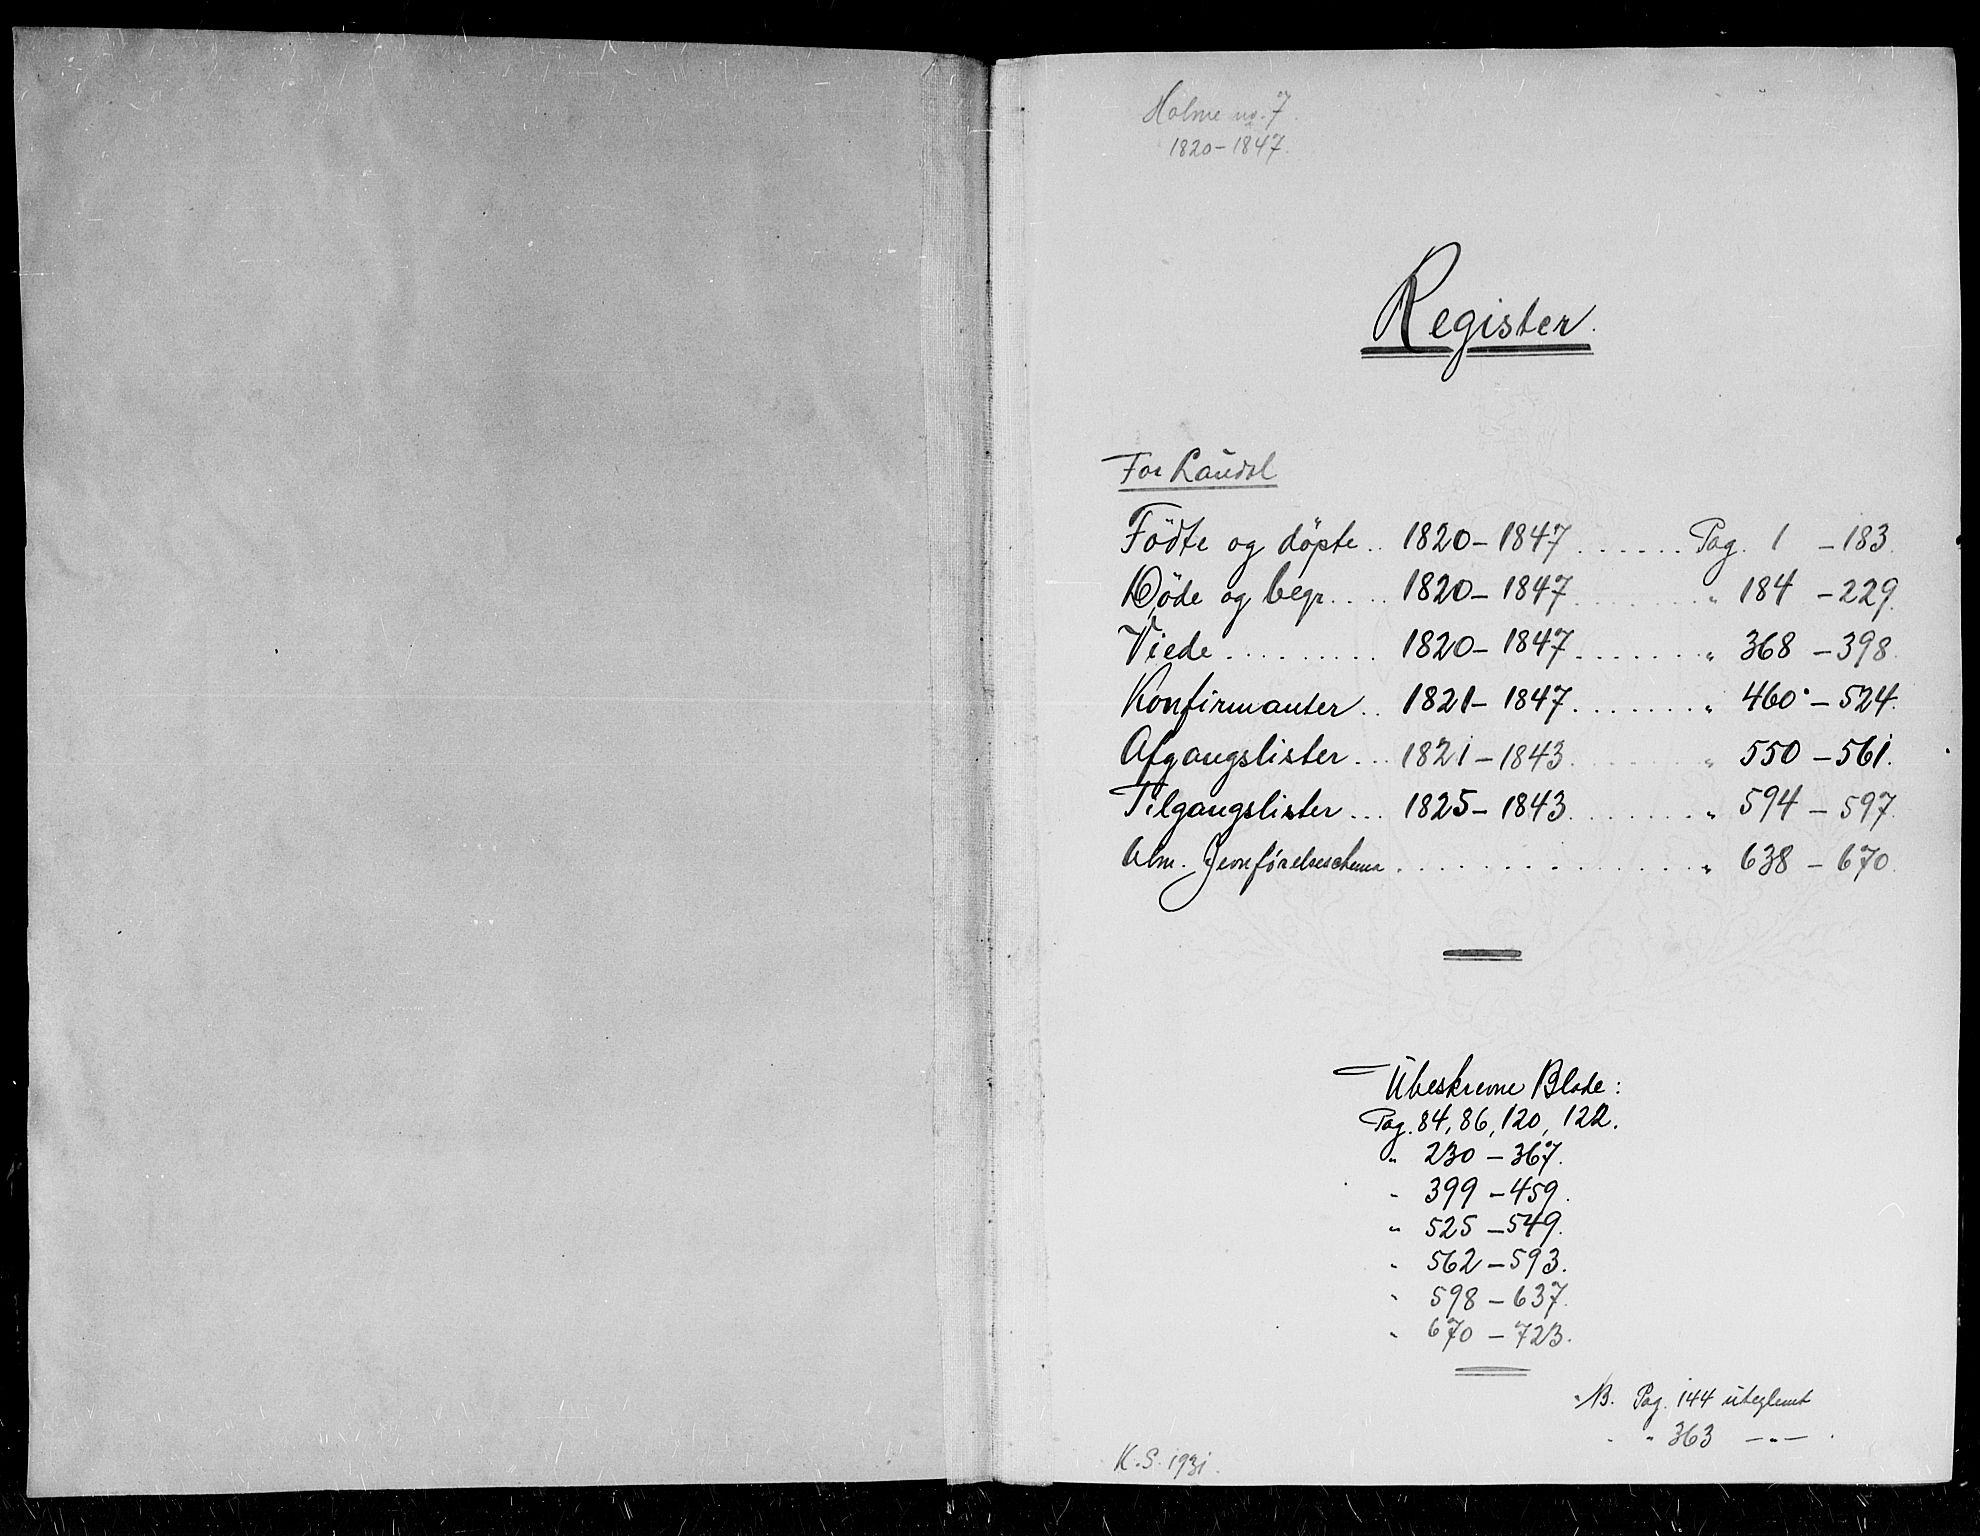 Holme no. 7.
1820-1847.
Register.
For Laudal
Födte og döpte.. 1820-1847....... Pag. 1 - 183.
Döde og begr.... 1820-1847....... " 184 - 229.
Viede......... 1820-1847....... " 368 - 398.
Konfirmanter.. 1821-1847....... " 460 - 524.
Afgangslister... 1821-1843....... " 550 - 561.
Tilgangslister... 1825-1843....... " 594 - 597.
Alm. Jevnförelseschema............... " 638 - 670.
Ubeskrevne Blade:
Pag. 84, 86, 120, 122.
" 230 - 367.
" 399 - 459.
" 525 - 549.
" 562 - 593.
" 598 - 637.
" 670 - 723.
NB. Pag. 144 uteglemt
" " 363 -"-.
K.S. 1931.